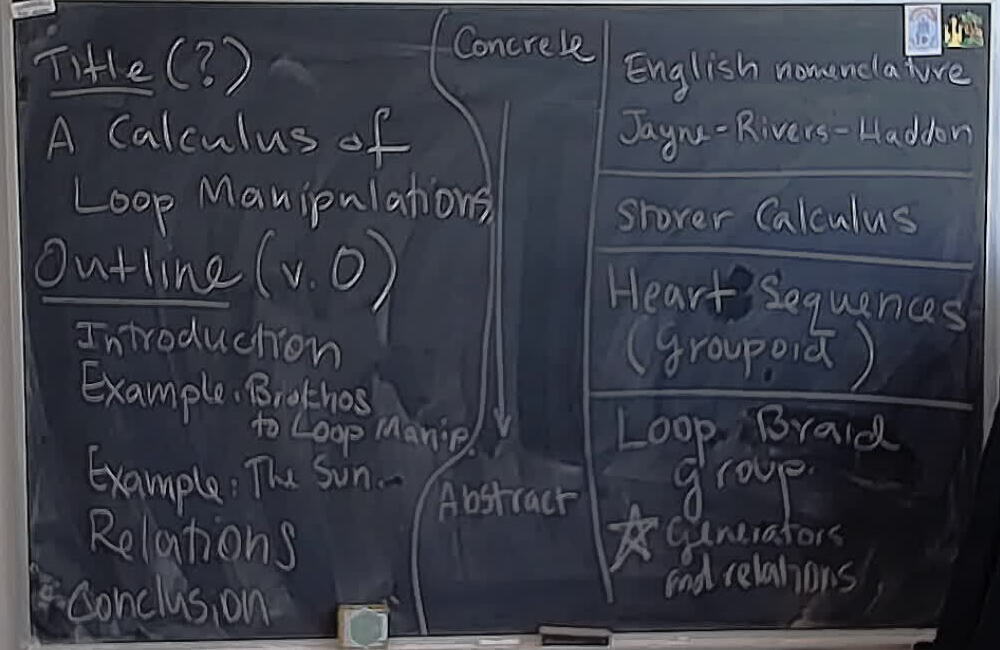 Title (?)
A Calculus of
Loop Manipulations
Outline (v. 0)
Introduction
Example: Brokhos
to Loop Manip.
Example: The Sun...
Relations
Conclusion
Concrete
Abstract
English nomenclature
Jayne-Rivers-Haddon
Storer Calculus
Heart Sequences
(groupoid)
Loop Braid
group.
☆ Generators
and relations